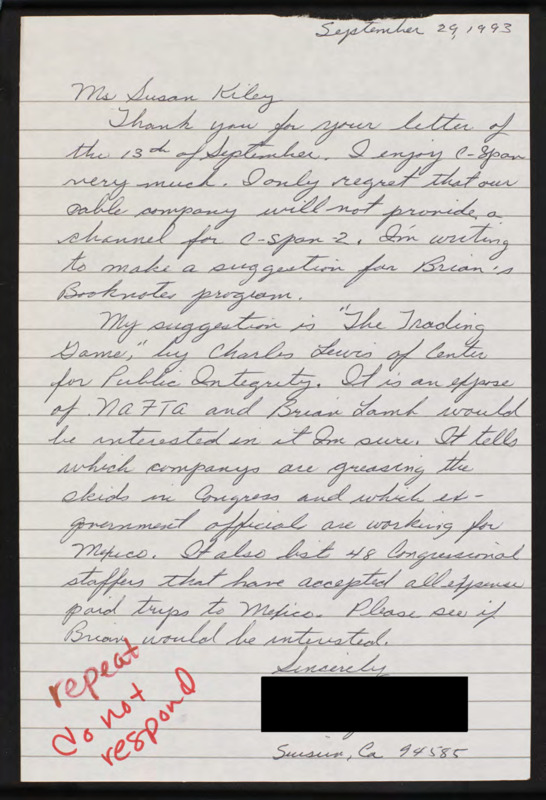 September 29, 1993
Ms Susan Kiley
Thank you for your letter of
the 13th of September. I enjoy C-Span
very much. I only regret that our
cable company will not provide a
channel for C-Span-2. I'm writing
to make a suggestion for Brian's
Booknotes program.
My suggestion is "The Trading
Game," by Charles Lewis of Center
for Public Integrity. It is an expose
of NAFTA and Brian Lamb would
be interested in it Im sure. It tells
which companys are greasing the
skids in Congress and which ex-
government official are working for
Mexico. It also list 48 Congressional
staffers that have accepted all expense
paid trips to Mexico. Please see if
Brian would be interested.
Sincerely
Suisun, Ca 94585
repeat
do not
respond